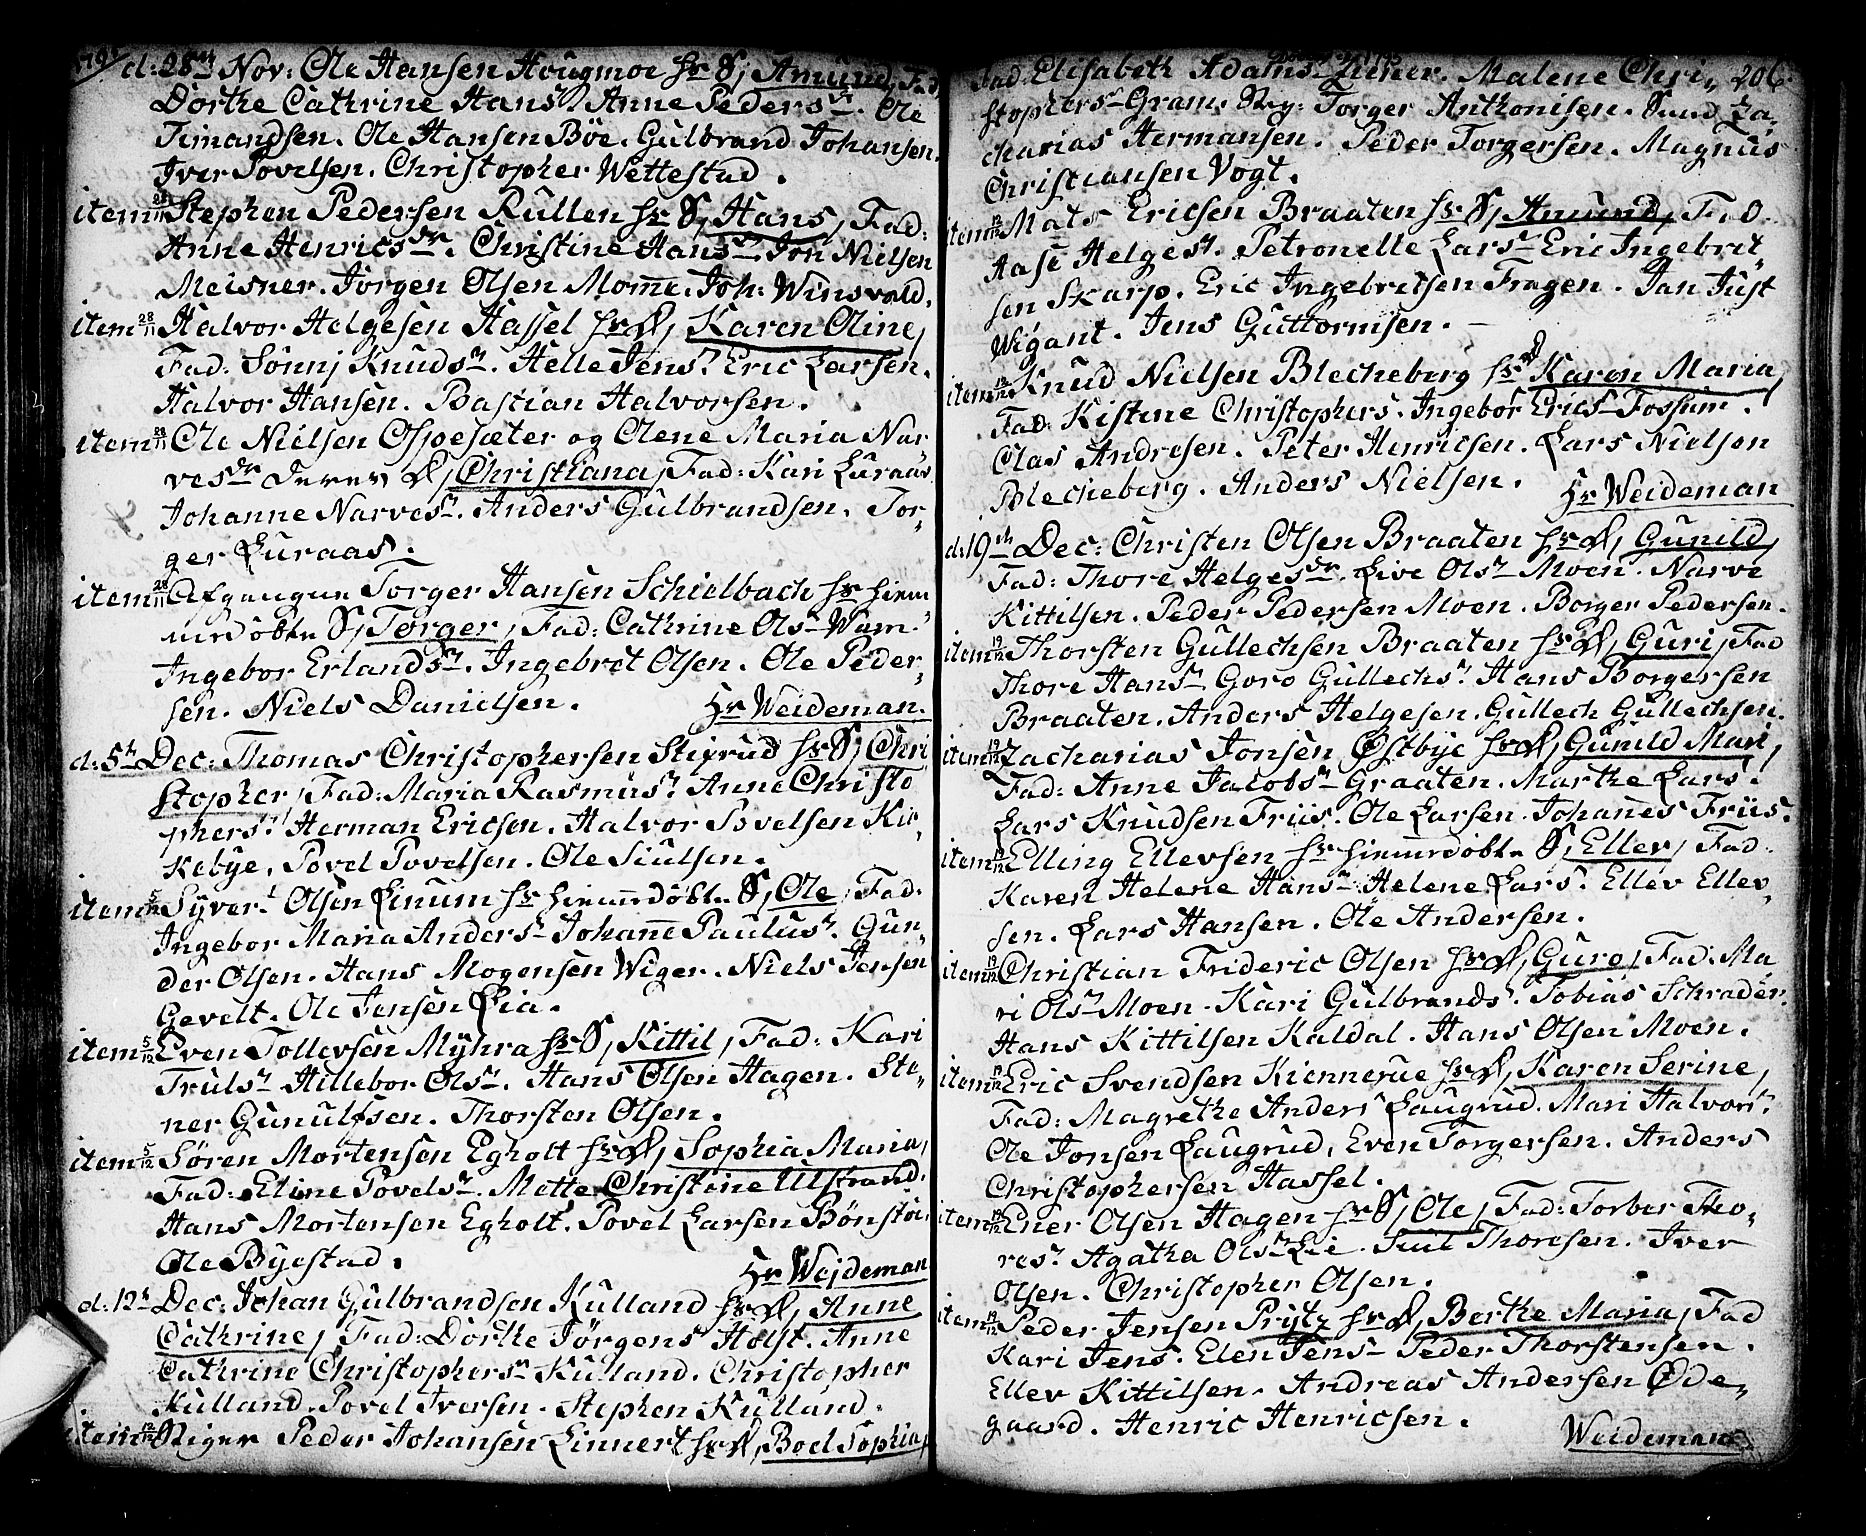 d: 28de Nov: Ole Hansen Hougmoe hs S, Amund, Fad,
Dorthe Cathrine Hansd. Anne Pedersdr. Ole
Timandsen. Ole Hansen Böe. Gulbrand Johansen.
Iver Povelsen. Christopher Wettestad.
item 28/11 Stephen Pedersen Rullen hs S, Hans, Fad:
Anne Henricsdr. Christine Hansdr. Jon Nielsen
Meisner. Jörgen Olsen Mom̄e. Joh: Winsvold.
item 28/11 Halvor Helgesen Hassel hs D, Karen Oline,
Fad: Sönnj Knudsdr. Helle Jensd. Eric Larsen.
Halvor Hansen. Bastian Halvorsen.
item 28/11 Ole Nielsen Ospesæter og Olene Maria Nar
vesdr deres D, Christiana, Fad: Kari Luraas
Johanne Narvesdr. Anders Gulbrandsen. Tor-
ger Luraas.
item 28/11 Afgangne Torger Hansen Schielbach hs hiem
medöbte S, Torger, Fad: Cathrine Olsdr Wam
Ingebor Erlandsdr. Ingebret Olsen. Ole Peder-
sen. Niels Danielsen. Hr Weideman.
d: 5te Dec: Thomas Christophersen Stifrud hs S, Chri
stopher, Fad: Maria Rasmusd. Anne Christo
phersd. Herman Ericsen. Halvor Povelsen Kir-
kebye. Povel Povelsen. Ole Siulsen.
item 5/12 Syver Olsen Linum hs hiemmedöbte S, Ole, Fad:
Ingebor Maria Andersd Johan̄e Paulusd. Gun-
der Olsen. Hans Mogensen Wiger. Niels Jensen
Gevelt. Ole Jensen Lia.
item 5/12 Even Tollevsen Myhra hs S, Kittil, Fad: Kari
Trulsdr Hillebor Olsdr. Hans Olsen Hagen. Ste-
ner Gunulfsen. Thorsten Olsen.
item 5/12 Sören Mortensen Egholt hs D, Sophia Maria,
Fad: Eline Povelsdr. Mette Christine Ulstrand.
Hans Mortensen Egholt. Povel Larsen Bönstöe.
Ole Byestad. Hr Weideman
d: 12te Dec: Johan Gulbrandsen Kulland hs D, Anne
Cathrine, Fad: Dorthe Jörgens Holst. Anne
Cathrine Christophersdr Kulland. Christopher
Kulland. Povel Iversen. Stephen Kulland.
item 12/12 Stiger Peder Johansen Linnert hs D, Boel Sophia,
206
Fad: Elisabeth Adams. Malene Chri-
stophersdr Gram. Torger Anthonisen. Sund Za-
charias Hermansen. Peder Torgersen. Magnus
Christiansen Vogt.
item 12/12 Mats Ericsen Braaten hs S, Amund, Fad.
Aase Helgesd. Petronelle Larsd Eric Ingebret
sen Skarp. Eric Ingebretsen Fragen. Jan Just
Wigant. Jens Guttormsen.
item 12/12 Knud Nielsen Blecheberg hs D Karen Maria,
Fad: Kistine Christophers. Ingebor Erics Fossum.
Clas Andresen. Peter Henricsen. Lars Nielsen
Blecheberg. Anders Nielsen. Hr Weideman
d: 19de Dec: Christen Olsen Braaten hs D, Gunild,
Fad: Thore Helgesdr. Live Olsd Moen. Narve
Kittilsen. Peder Pedersen Moen. Borger Pedersen.
item 19/12 Thorsten Gullechsen Braaten hs D, Guri, Fad
Thore Hansd Goro Gullechsd. Hans Borgersen
Braaten. Anders Helgesen. Gullech Gullechsen.
item 19/12 Zacharias Jonsen Østbye hs D, Gunild Mari,
Fad: Anne Jacobsdr Graaten. Marthe Larsd.
Lars Knudsen Friis. Ole Larsen. Johannes Friis.
item 19/12 Elling Ellevsen hs hiemmedöbte S, Ellev, Fad.
Karen Helene Hansd Helene Larsd. Ellev Ellev-
sen. Lars Hansen. Ole Andersen.
item 19/12 Christian Frideric Olsen hs D, Guro, Fad: Ma
ri Olsdr Moen. Kari Gulbrandsd. Tobias Schrader.
Hans Kittilsen Kaldal. Hans Olsen Moen.
item 19/12 Eric Svendsen Kiennerue hs D, Karen Serine,
Fad: Magrethe Andersd Laugrud. Mari Halvorsd.
Ole Jonsen Laugrud, Even Torgersen. Anders
Christophersen Hassel.
item 19/12 Ener Olsen Hagen hs S, Ole, Fad: Torber Tho-
resd. Agatha Olsdr Lie. Siul Thoresen. Iver
Olsen. Christopher Olsen.
item 19/12 Peder Jensen Prytz hs D, Berthe Maria, Fad
Kari Jensd. Elen Jensd Peder Thorstensen.
Ellev Kittilsen. Andreas Andersen Øde-
gaard. Henric Henricsen.
Weideman